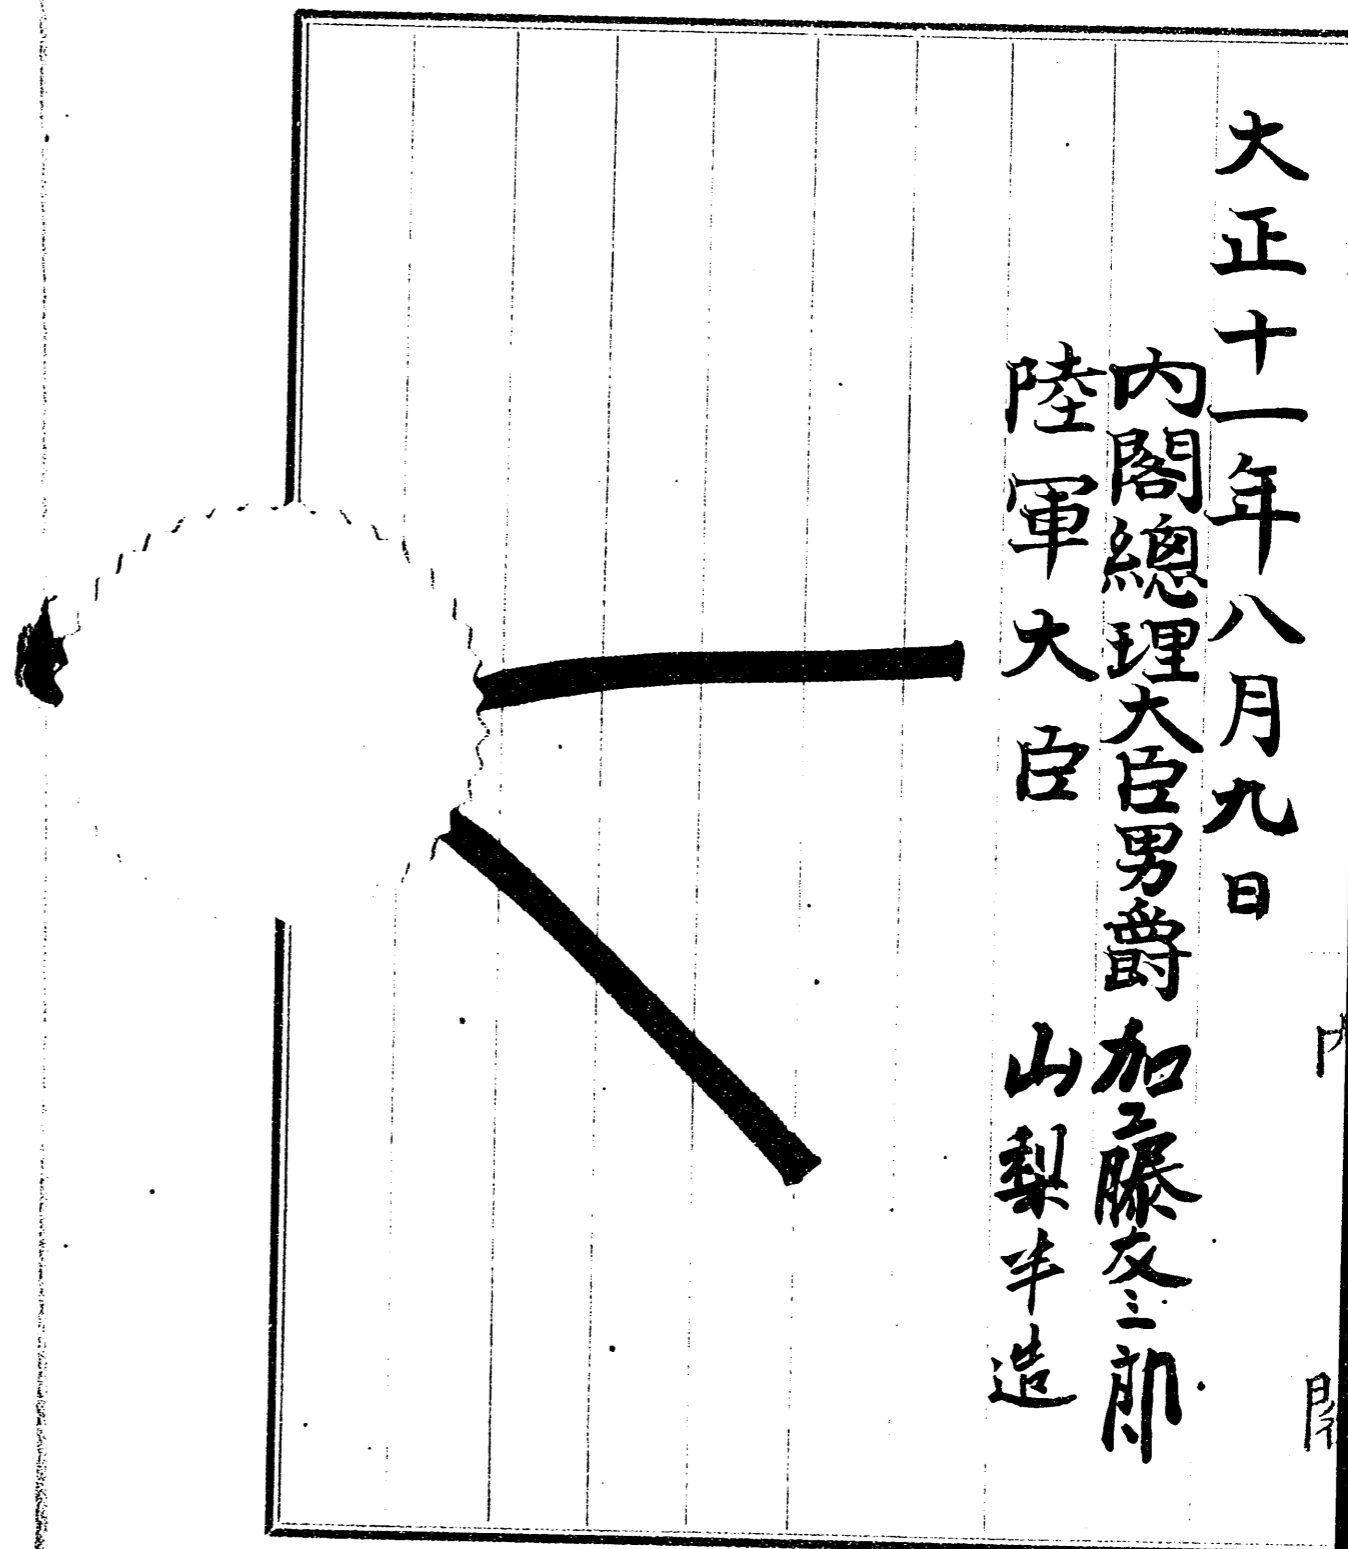 大正十一年八月九日
内閣總理大臣男爵 加藤友三郎
陸軍大臣 山梨半造
内閣